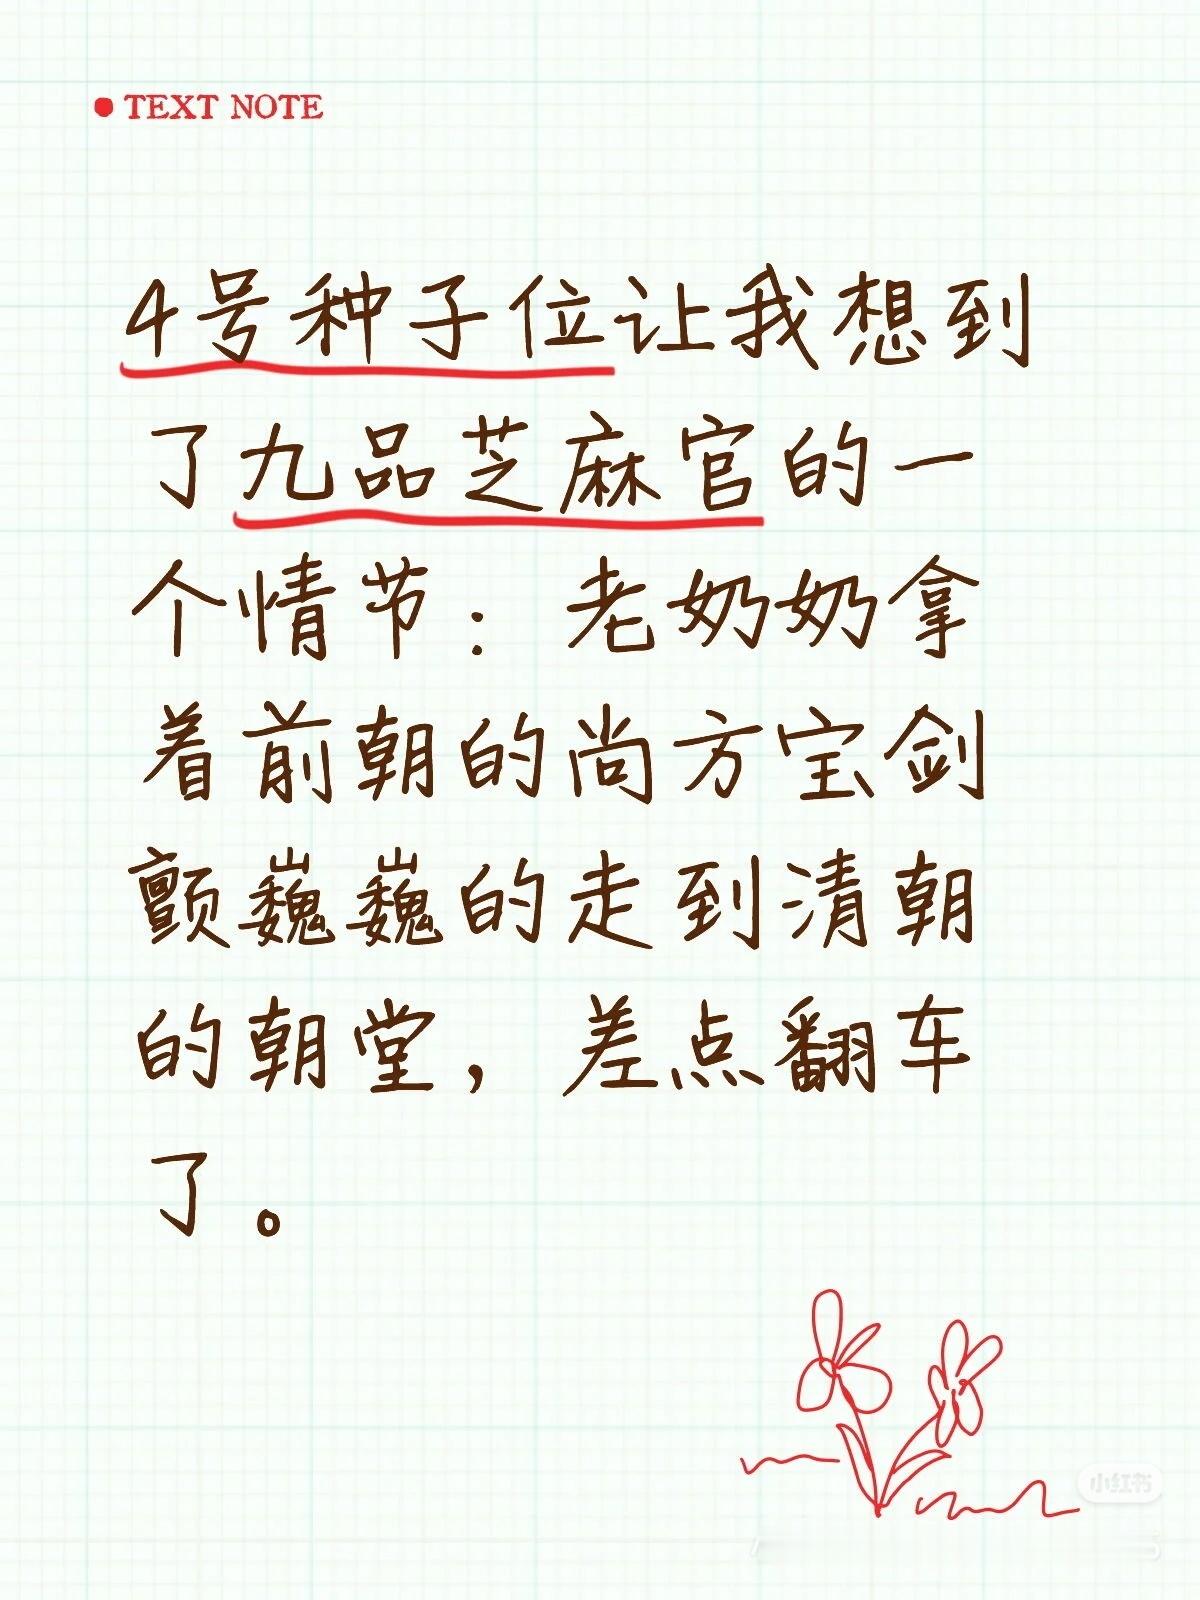 TEXT NOTE
4号种子位让我想到
了九品芝麻官的一
个情节：老奶奶拿
着前朝的尚方宝剑
颤巍巍的走到清朝
的朝堂，差点翻车
了。
小红书